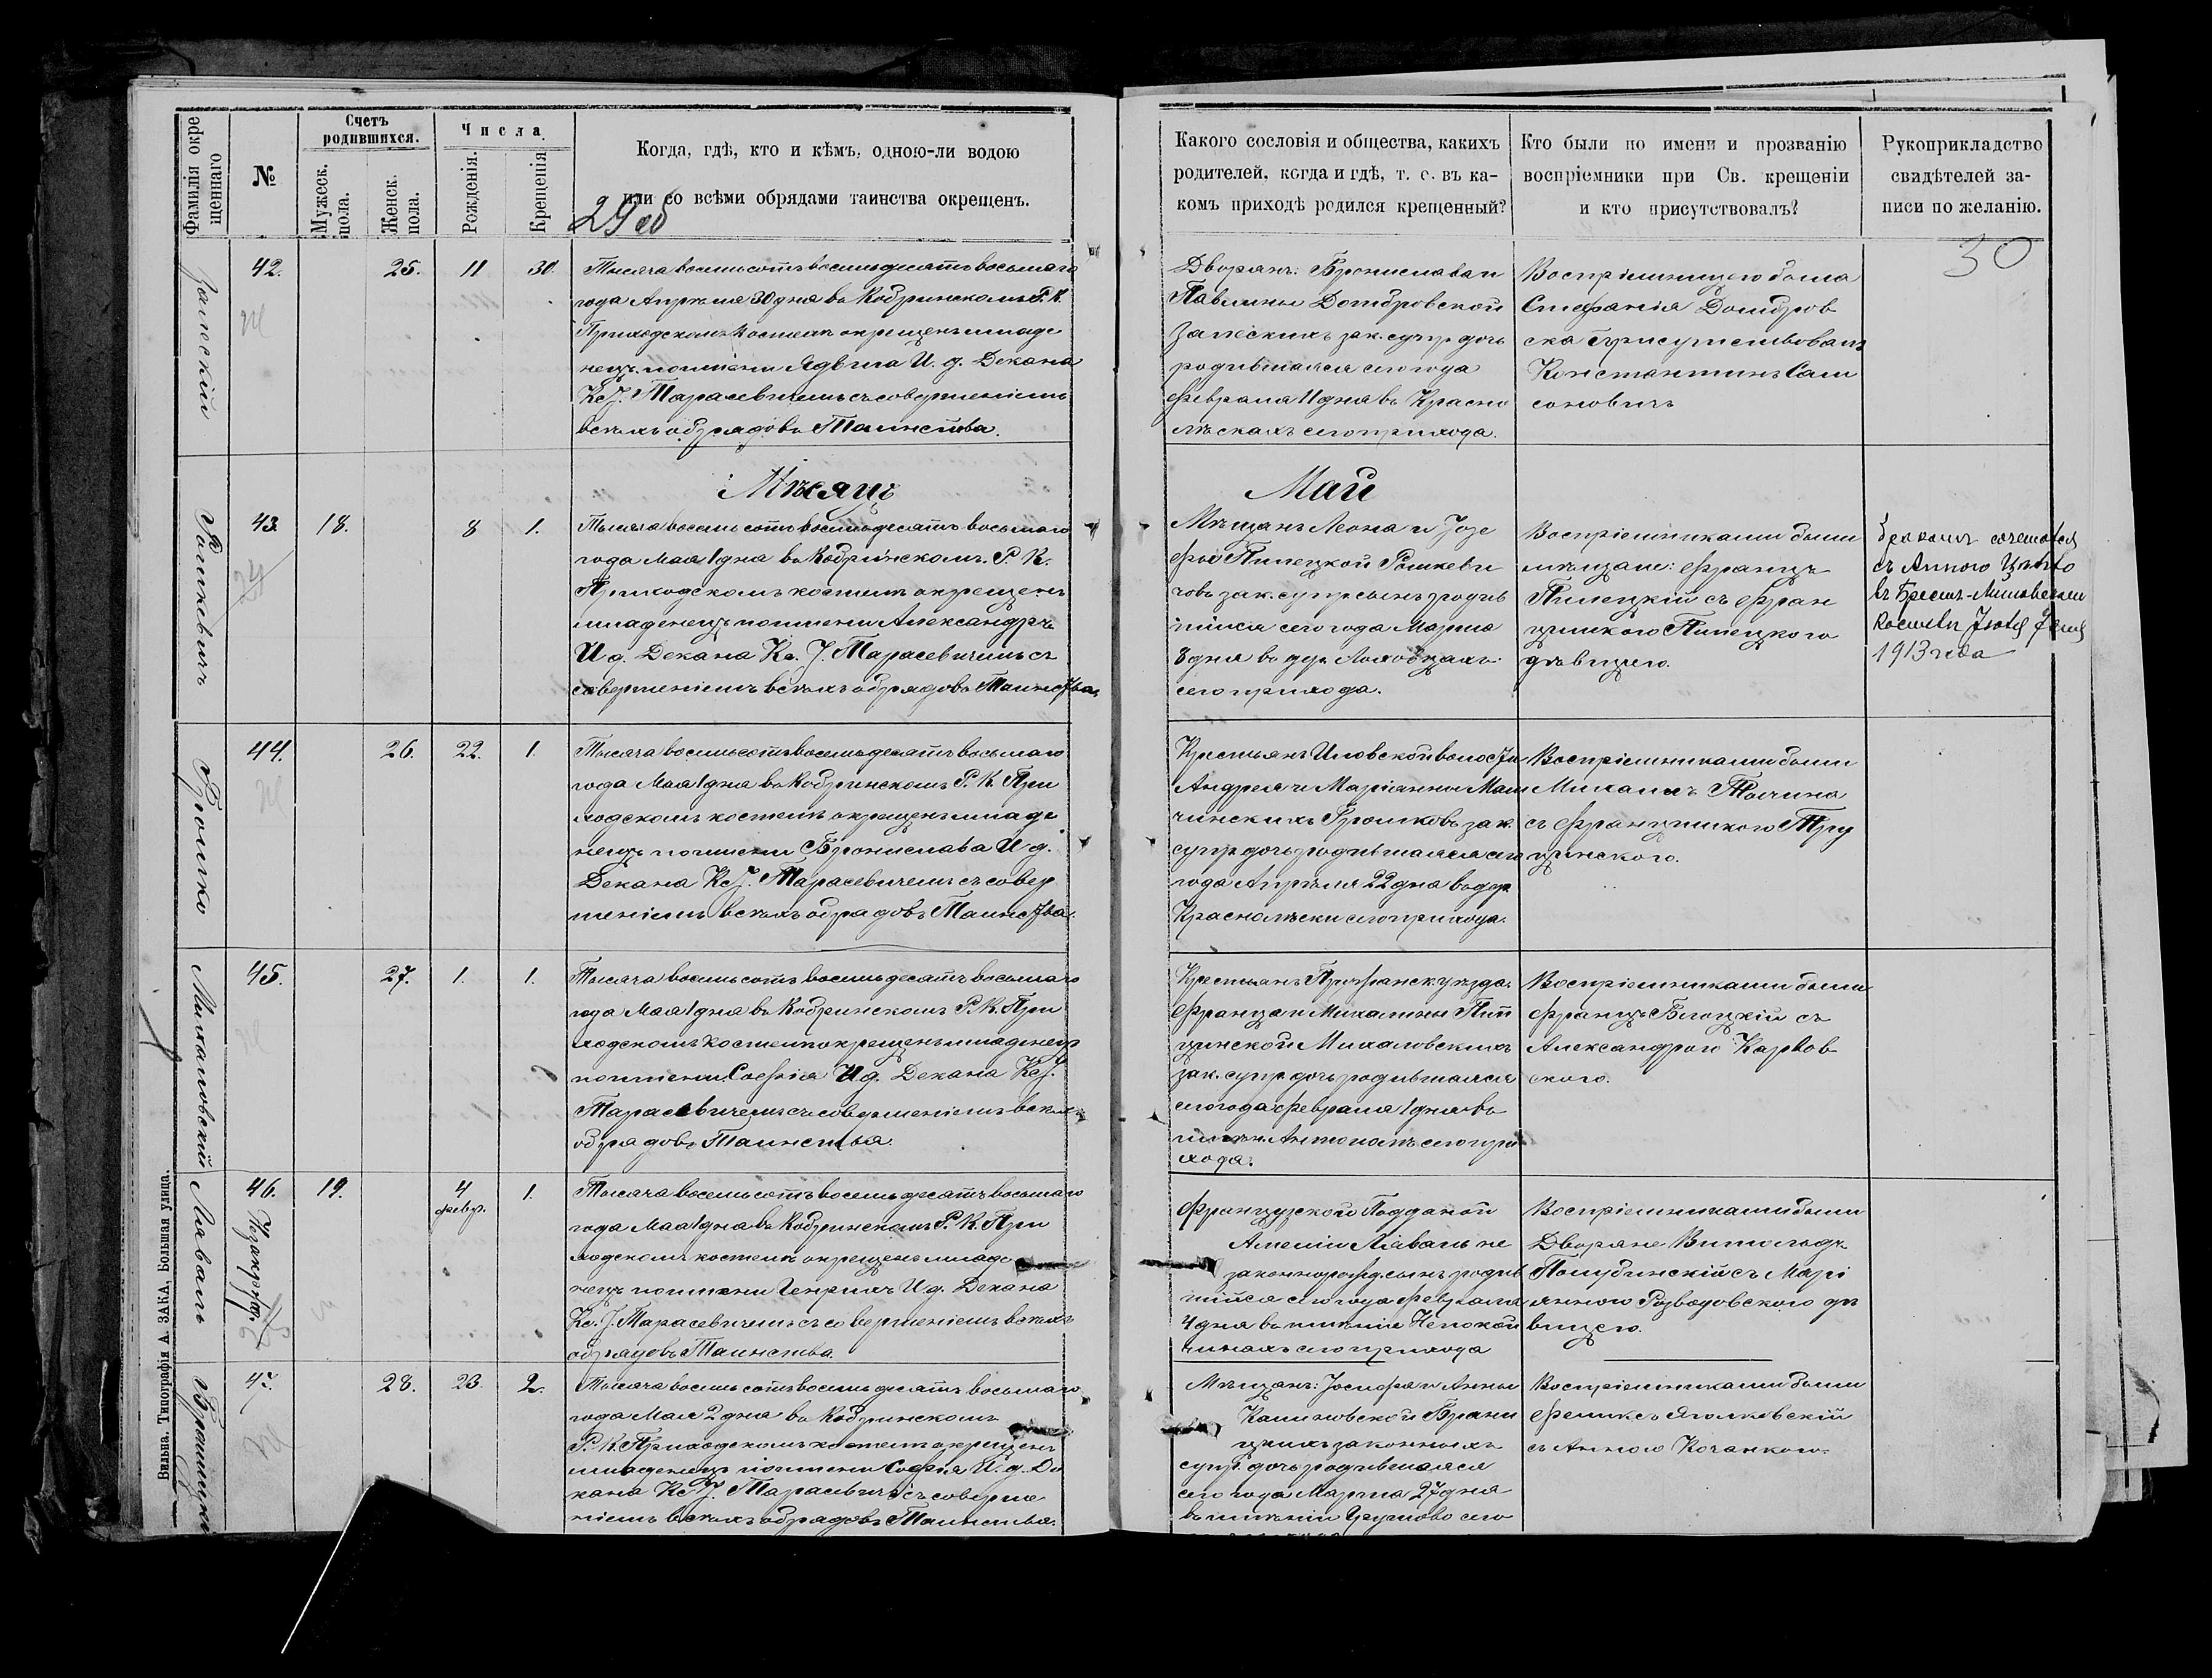 Фамилія окре
щеннаго
№
Счетъ
родившихся.
Мужеск.
пола.
Женск.
пола.
Числа
Рожденія.
Крещенія
Когда, гдѣ, кто и кѣмъ, одною-ли водою
или со всѣми обрядами таинства окрещенъ.
29 об
Залескій
42.
25.
11
30.
Тысяча восемьсотъ восемьдесятъ восьмаго
года Апрѣля 30 дня въ Кобринскомъ Р. К.
Приходскомъ Костелѣ окрещенъ младе
нецъ по имени Ядвига И. д. Декана
Кс. J. Тарасевичемъ съ совершеніемъ
всѣхъ обрядовъ Таинства.
Мѣсяцъ
Рошкевичъ
43.
18.
8
1.
Тысяча восемьсотъ восемьдесятъ восьмаго
года Мая 1 дня въ Кобринскомъ Р. К.
Приходскомъ костелѣ окрещенъ
младенецъ по имени Александръ
И д. Декана Кс. J. Тарасевичемъ съ
совершеніемъ всѣхъ обрядовъ Таинства.
Громко
44.
26.
22.
1.
Тысяча восемьсотъ восемьдесятъ восьмаго
года Мая 1 дня въ Кобринскомъ Р. К. При
ходскомъ костелѣ окрещенъ младе
нецъ по имени Бронислава И д.
Декана Кс J. Тарасевичемъ съ совер
шеніемъ всѣхъ обрядовъ Таинства.
Михаловскій
45.
27.
1.
1.
Тысяча восемьсотъ восемьдесятъ восьмаго
года Мая 1 дня въ Кобринскомъ Р. К. При
ходскомъ костелѣ окрещенъ младенецъ
по имени Софія И д. Декана Кс J.
Тарасевичемъ съ совершеніемъ всѣхъ
обрядовъ Таинства.
Лаваль
46.
Незаконнорожд.
19.
4
февр.
1.
Тысяча восемьсотъ восемьдесятъ восьмаго
года Мая 1 дня въ Кобринскомъ Р. К. При
ходскомъ костелѣ окрещенъ младе
нецъ по имени Генрихъ И д. Декана
Кс. J. Тарасевичемъ съ совершеніемъ всѣхъ
обрядовъ Таинства.
47.
28.
23.
2.
Тысяча восемьсотъ восемьдесятъ восьмаго
года Мая 2 дня въ Кобринскомъ
Р. К. Приходскомъ костелѣ окрещенъ
младенецъ по имени Софія И. д. Де
кана Кс J. Тарасевичемъ съ соверше
ніемъ всѣхъ обрядовъ Таинства.
Вильна. Типографія А. ЗАКА, Большая улица.
Какого сословія и общества, какихъ
родителей, когда и гдѣ, т. е. въ ка-
комъ приходѣ родился крещенный?
Кто были по имени и прозванію
воспріемники при Св. крещеніи
и кто присутствовалъ?
Рукоприкладство
свидѣтелей за-
писи по желанію.
30
Дворянъ: Бронислава и
Павлины Домбровской
Залескихъ зак. супр дочь
родившаяся сего года
февраля 11 дня въ Красно
лѣскахъ сего прихода.
Воспріемницею была
Стефанія Домбров
ска присутствовалъ
Константинъ Сам
соновичъ
Май
Мѣщанъ Леона и Jозе
фы Пилецкой Рошкеви
човъ зак. супр сынъ родив
шійся сего года Марта
8 дня въ дер. Ляховцахъ
сего прихода.
Воспріемниками были
мѣщане: Францъ
Пилецкій съ Фран
цишкою Пилецкого
дѣвицею.
бракомъ сочетался
съ Анною
въ Брестъ-Литовскомъ
костелѣ
1913 года
Крестьянъ Иловской волости
Андрея и Маріанны Мат
чинскихъ Громковъ зак.
супр дочь родившаяся сего
года Апрѣля 22 дня въ дер
Краснолѣски сего прихода.
Воспріемниками были
Михаилъ
съ Францишкою Тру
цинского.
Крестьянъ Пружанск. уѣзда
Франца и Михалины Пил
цинской Михаловскихъ
зак. супр. дочь родившаяся
сего года февраля 1 дня въ
имѣн. Антополѣ сего при
хода.
Воспріемниками были
Францъ Блоцкій съ
Александрою Карпов
ского.
Французской Подданой
Амеліи Лаваль не
законнорожд. сынъ родив
шійся сего года февраля
4 дня въ имѣніи Непокой
чицахъ сего прихода
Воспріемниками были
Дворяне Витольдъ
Полубинскій съ Марі
янною Розвадовского дѣ
вицею.
Мѣщанъ: Jосифа и Анны
Калиновской Брани
цкихъ законныхъ
супр. дочь родившаяся
сего года Марта 27 дня
въ имѣніи сего
Воспріемниками были
Феликсъ Яголковскій
съ Анною Кочанкою.